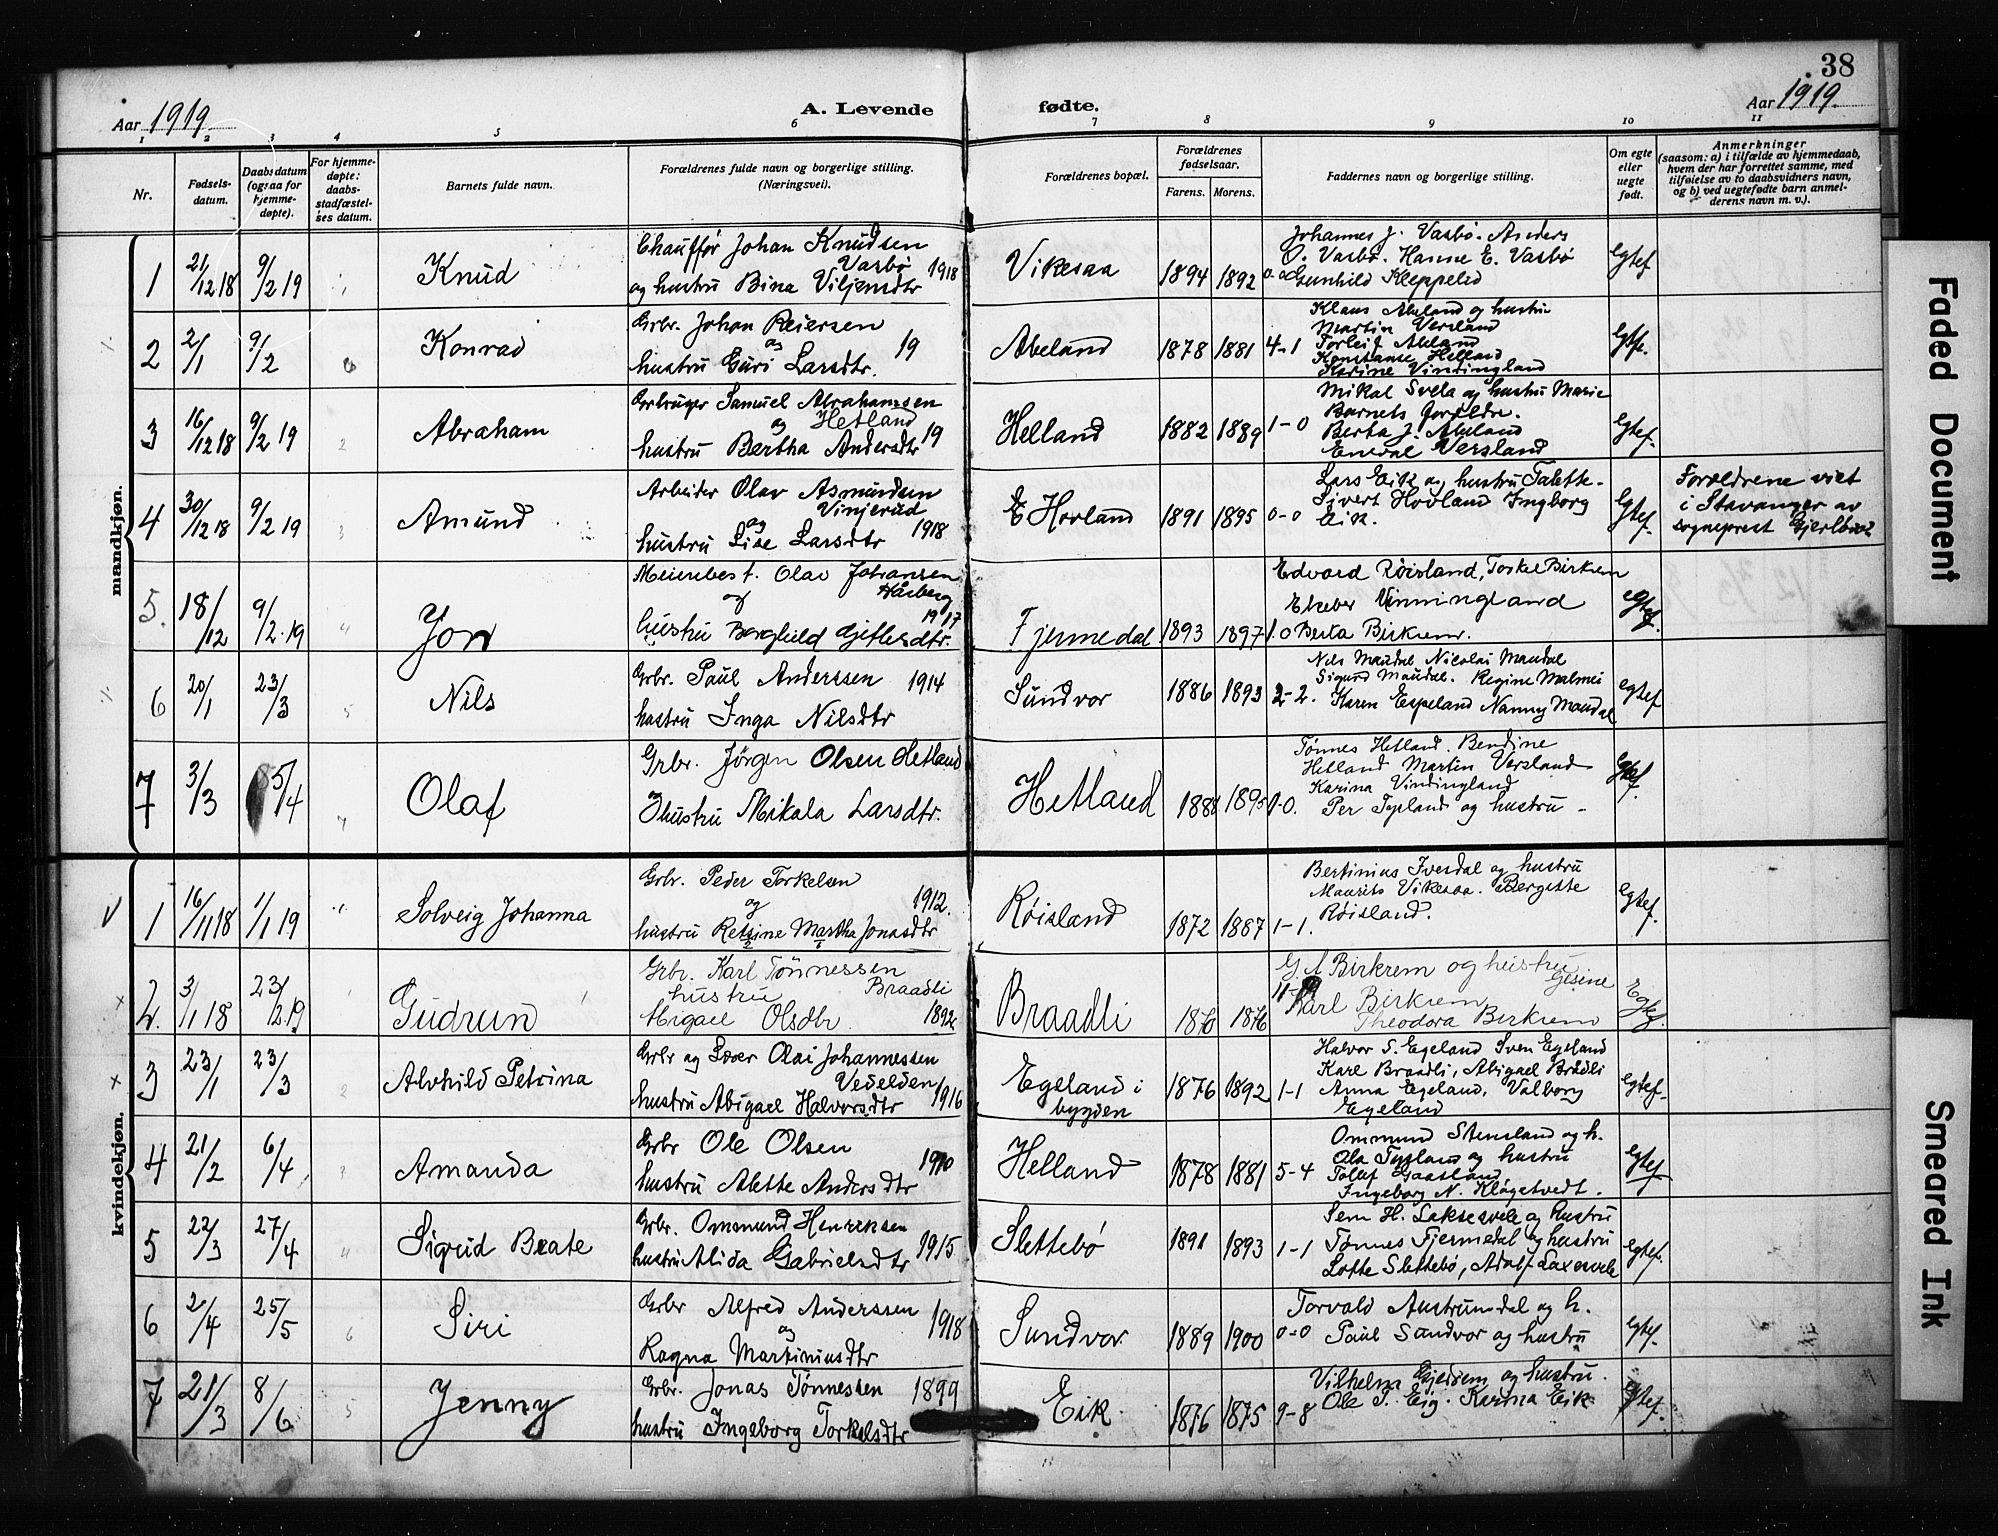 38
Aar 1919 A. Levende fødte. Aar 1919
1 2 3 4 5 6 7 8 9 10 11
Nr.
Fødsels-
datum.
Daabsdatum
(ogsaa for
hjemme-
døpte).
For hjemme-
døpte:
daabs-
stadfæstel-
ses datum.
Barnets fulde navn.
Forældrenes fulde navn og borgerlige stilling.
(Næringsvei).
Forældrenes bopæl.
Forældrenes
fødselsaar.
Farens. Morens.
Faddernes navn og borgerlige stilling.
Om egte
eller
uegte
født.
Anmerkninger
(saasom: a) i tilfælde av hjemmedaab,
hvem der har forrettet samme, med
tilføielse av to daabsvidners navn,
og b) ved uegtefødte barn anmel-
derens navn m. v.).
mandkjøn.
1 21/12 18 9/2 19 Knud
Chauffør Johan Knudsen
Vasbø 1918
og hustru Bina Viljemsdtr
Vikesaa 1894 1892 0-0
Johannes J. Vasbø. Anders
O. Vasbø. Hanne E. Vasbø
Gunhild Kleppelid
Egtef
2 2/1 9/2 Konrad
Grbr. Johan Reiersen
og 19
hustru Guri Larsdtr.
Abeland 1878 1881 4-1
Klaus Abeland og hustru
Martin Versland
Torleif Abeland
Konstanse Helland
Karine Vindingland
Egtf.
3 16/12 18 9/2 19 Abraham
Grbruger Samuel Abrahamsen
og Hetland
hustru Bertha Andersdtr 19
Helland 1882 1889 1-0
Mikal Svela og hustru Marie
Barnets forældre.
Berta J. Abeland
Eneval Versland
Egtef.
4 30/12 18 9/2 19 Amund
Arbeider Olav Asmundsen
Vinjerud
og 1918
hustru Lise Larsdtr
E Hovland 1891 1895 0-0
Lars Eik og hustru Talette.
Sivert Hovland Ingborg
Eik.
Egtef.
Forældrene viet
i Stavanger av
sogneprest
5. 18/12 9/2 19 Jon
Meieribest. Olav Johansen
Håberg
og 1917
hustru Borghild Gitlesdtr.
Fjermedal 1893 1897 1.0
Edvard Røisland, Torkel Birkrem
Vinningland
Berta Birkrem.
Egtef.
6 20/1 23/3 Nils
Grbr. Paul Anderssen 1914
hustru Inga Nilsdtr
Sundvor 1886 1893 2-2.
Nils Maudal Nicolai Maudal
Sigurd Maudal. Regine Malmei
Karen Espeland Nanny Maudal
Egtef
7 3/3 5/4 Olaf
Grbr. Jörgen Olsen Hetland
hustru Mikala Larsdtr.
Hetland 1888 1895 1-0.
Tønnes Hetland. Bendine
Hetland Martin Versland
Karina Vindingland
Per Tyeland og hustru
Egtef.
kvindekjøn.
1 16/11 18 1/1 19 Solveig Johanna
Grbr. Peder Torkelsen
og 1912.
hustru Retsine Martha Jonasdtr
Røisland 1872 1887 1-1.
Bertinius Ivesdal og hustru
Maurits Vikesaa. Bergitte
Røisland.
Egtef.
2. 3/1 18 23/2 19 Gudrun
Grbr. Karl Tönnessen
hustru Braadli
Abigael Olsdtr. 1892
Braadli 1870 1876
G A Birkrem og hustru
Gesine
Karl Birkrem
Theodora Birkrem
Egtef.
3 23/1 23/3 Alvhild Petrina
Grbr og Læser Olai Johannessen
Vedelden
hustru Abigael Halvorsdtr 1916
Egeland i
bygden
1876 1892 1-1
Halvor S. Egeland Sven Egeland
Karl Braadli, Abigael Brådli
Anna Egeland, Valborg
Egeland
Egtef.
4 21/2 6/4 Amanda
Grbr Ole Olsen
1910
hustru Alette Andersdtr
Helland 1878 1881 5-4
Ommund Stensland og h.
Ola Tysland og hustru
Tollef Gaasland
Ingeborg N. Kløgetvedt.
Egtef
5 22/3 27/4 Sigrid Beate
Grbr. Ommund Henriksen
hustru Alida Gabrielsdtr 1915
Slettebø 1891 1893 1-1
Sem H. Laksesvele og hustru
Tønnes Fjermedal og hustru
Lotte Slettebø, Adolf Laxesvele
Egtef.
6 2/4 25/5 Siri
Grbr Alfred Anderssen
og 1918
Ragna Martiniusdtr
Sundvor 1889 1900 0-0
Torvald Austrumdal og h.
Paul Sundvor og hustru
Egtef.
7 21/3 8/6 Jenny
Grbr. Jonas Tönnessen 1899
hustru Ingeborg Torkelsdtr
Eik. 1876 1875 9-8
Vilhelm Gjedrem og hustru.
Ole T. Eig. Karina Eik
Egtef.
Faded Document
Smeared Ink